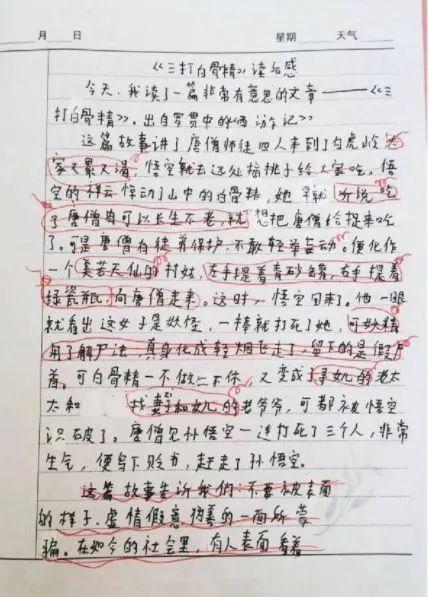 月 日 星期 天气
《三打白骨精》读后感
今天,我读了一篇非常有意思的文章——《三
打白骨精》。出自罗贯中的《西游记》
这篇故事讲了唐僧师徒四人来到了白虎岭,大
家又累又渴,悟空就去远处摘桃子给大家吃,悟
空的祥云惊动了山中的白骨精,她早就听说吃
了唐僧肉可以长生不老,就想把唐僧给捉来吃
了。可是唐僧有徒弟保护,不敢轻举妄动。便化作
一个美若天仙的村姑,左手提着青砂罐,右手提着
绿瓷瓶,向唐僧走来。这时,悟空回来了。他一眼
就看出这女子是妖怪,一棒就打死了她,可妖精
用了解尸法,真身化成轻烟飞走了,留下的是假尸
首。可白骨精一不做二不休,又变成了寻女儿的老太
太和找妻子和女儿的老爷爷,可都被悟空
识破了。唐僧见孙悟空一连打死了三个人,非常
生气,便写下贬书,赶走了孙悟空。
这篇故事告诉我们:不要被表面
的样子、虚情假意伪善的一面所蒙
骗。在如今的社会里,有人表面看着